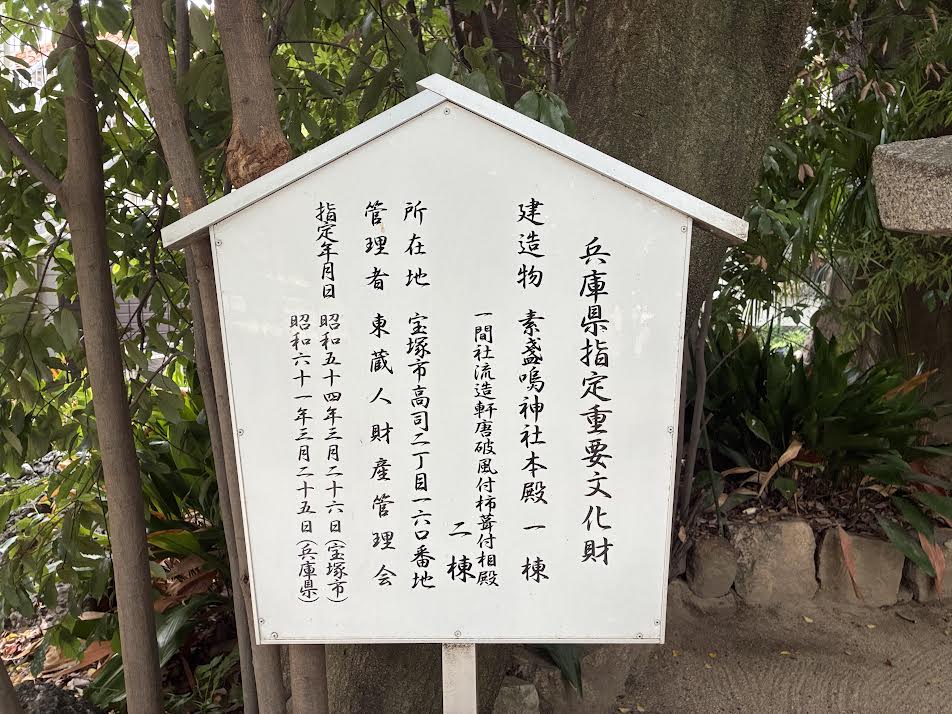 兵庫県指定重要文化財
建造物 素盞嗚神社本殿 一棟
一間社流造軒唐破風付杮葺付相殿
二棟
所在地 宝塚市高司二丁目一六〇番地
管理者 東蔵人財産管理会
指定年月日 昭和五十四年三月二十六日(宝塚市)
昭和六十一年三月二十五日(兵庫県)